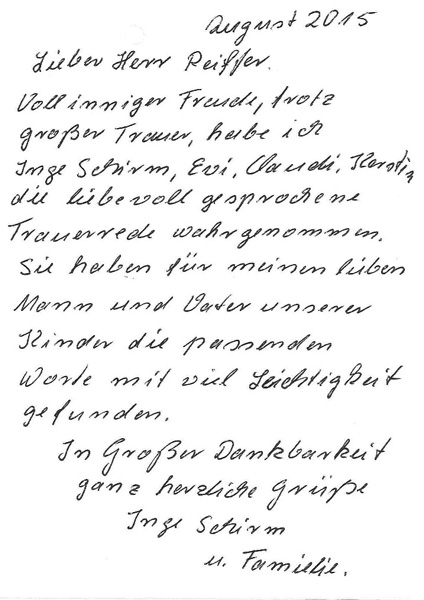 August 2015
Lieber Herr Reiffer.
Voll inniger Freude, trotz
großer Trauer, habe ich
Inge Schirm, Evi, Claudi, Kerstin
die liebevoll gesprochene
Trauerrede wahrgenommen.
Sie haben für meinen lieben
Mann und Vater unserer
Kinder die passenden
Worte mit viel Leichtigkeit
gefunden.
In Großer Dankbarkeit
ganz herzliche Grüße
Inge Schirm
u. Familie.